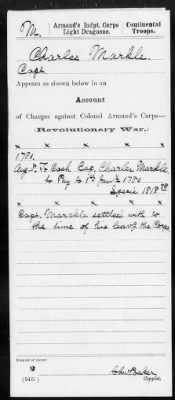 M. Armand's Indpt. Corps Continental
Light Dragoons. Troops.
Charles Markle
Capt.
Appears as shown below in an
Account
of Charges against Colonel Armand's Corps—
Revolutionary War:
x x x x x x
1781.
Aug. 8. To Cash Cap. Charles Markle
to Pay to 1st Jany. 1780
Specie 1818
x x x x x x
Capt. Markle settled with to
the time of his leavg the Corps
x x x x x x
Number of record:
2
(545)
Copyist.